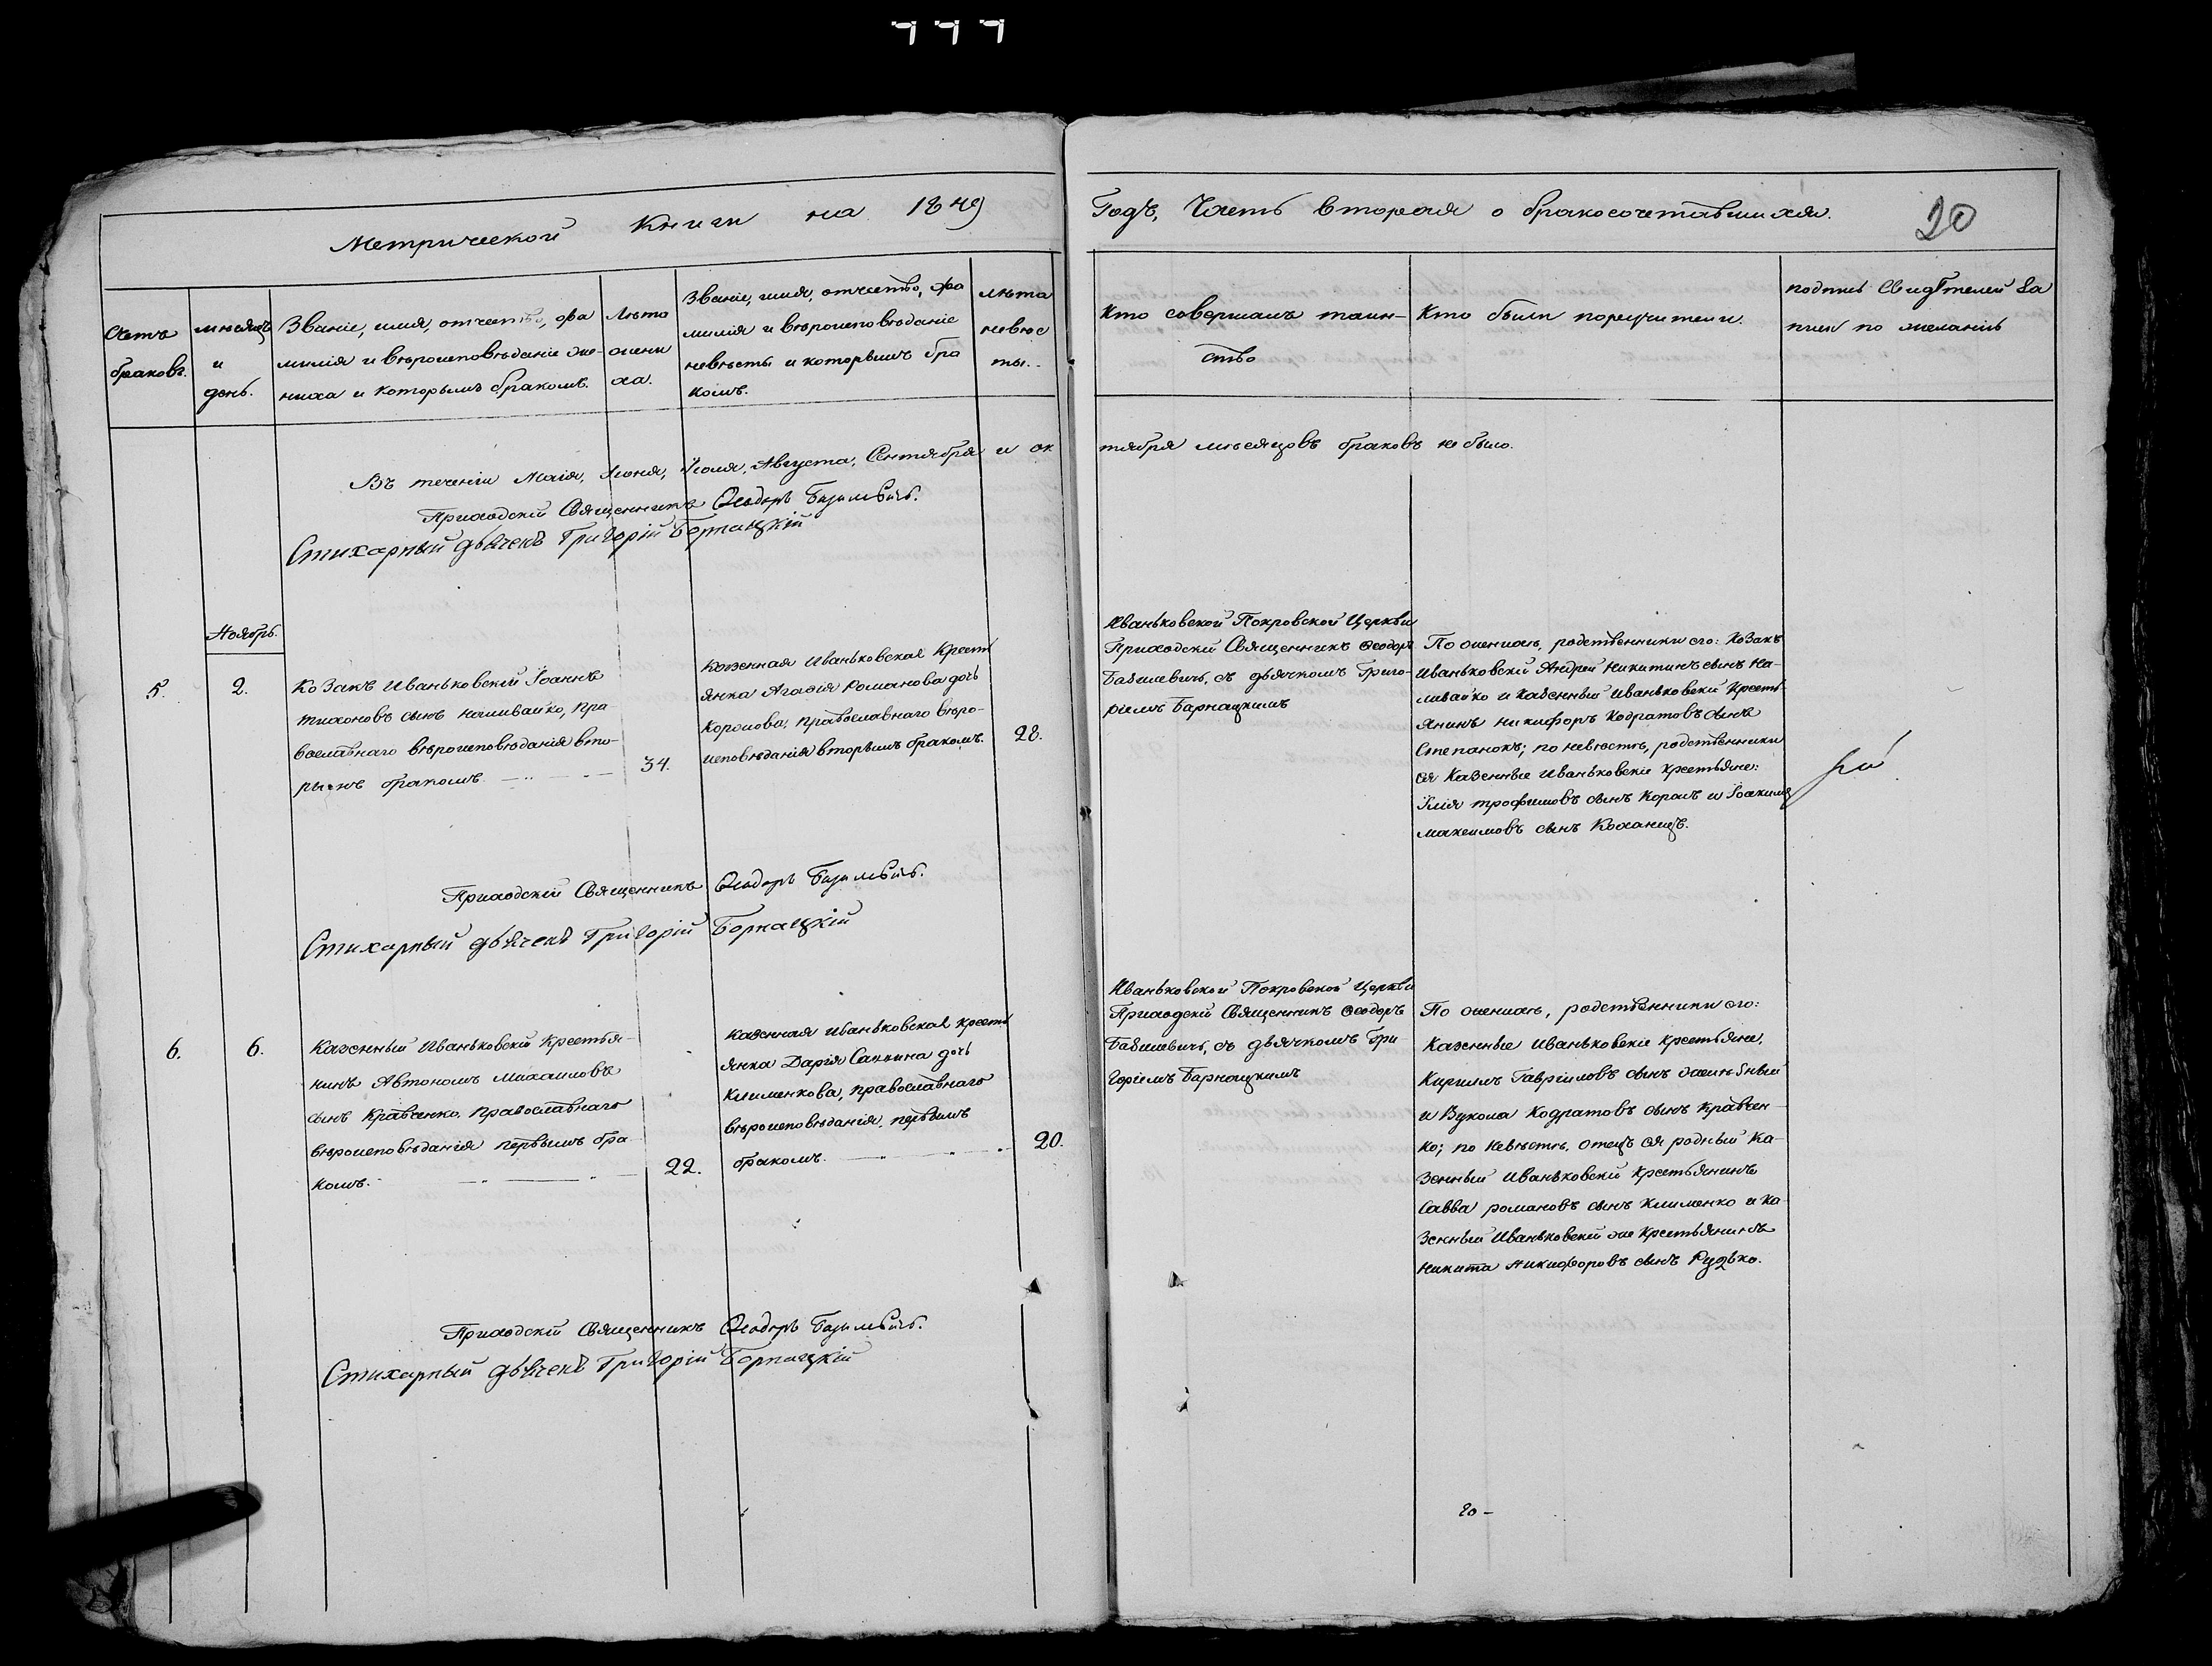 777
Метрической Книги на 1849
Годъ, Часть вторая о бракосочетавшихся.
20
Счетъ
браковъ.
мѣсяцъ
и
день.
Званіе, имя, отчество, фа
милія и вѣроисповѣданіе же-
ниха и которымъ бракомъ.
Лѣта
жени
ха.
Званіе, имя, отчество, фа
милія и вѣроисповѣданіе
невѣсты и которымъ бра
комъ.
лѣта
невѣс
ты.
Кто совершалъ таин-
ство
Кто были поручители.
подпись Свидѣтелей За
писи по желанію
Въ теченіи Маія, Іюня, Іюля, Августа, Сентября и ок
тября мѣсяцовъ браковъ не было.
Приходскій Священникъ Ѳеодоръ Базилевичъ.
Стихарный дьячекъ Григорій Барнацкій
Ноябрь.
5.
2.
Козакъ Иваньковскій Іоаннъ
Тихоновъ сынъ Наливайко, пра
вославнаго вѣроисповѣданія вто-
рымъ бракомъ
34.
Казенная Иваньковская Кресть
янка Агафія Романова дочь
Королова, православнаго вѣро-
исповѣданія вторымъ бракомъ.
28.
Иваньковской Покровской Церкви
Приходскій Священникъ Ѳеодоръ
Базилевичъ, съ дьячкомъ Григо-
ріемъ Барнацкимъ
По женихѣ, родственники его: Козакъ
Иваньковскій Андрей Никитинъ сынъ На-
ливайко и Казенный Иваньковскій Кресть-
янинъ Никифоръ Кодратовъ сынъ
Степанокъ; по невѣстѣ, родственники
ея Казенные Иваньковскіе Крестьяне:
Илія Трофимовъ сынъ Король и Іоакимъ
Максимовъ сынъ Коханецъ.
Приходскій Священникъ Ѳеодоръ Базилевичъ.
Стихарный дьячекъ Григорій Барнацкій
6.
6.
Казенный Иваньковскій Крестья-
нинъ Автономъ Михаиловъ
сынъ Кравченко, православнаго
вѣроисповѣданія первымъ бра
комъ.
22.
Казенная Иваньковская Кресть
янка Дарія Саввина дочь
Клименкова, православнаго
вѣроисповѣданія, первымъ
бракомъ.
20.
Иваньковской Покровской Церкви
Приходскій Священникъ Ѳеодоръ
Базилевичъ, съ дьячкомъ Гри
горіемъ Барнацкимъ
По женихѣ, родственники его:
Казенные Иваньковскіе Крестьяне,
Кириллъ Гавріиловъ сынъ
и Вукола Кодратовъ сынъ Кравчен-
ко; по невѣстѣ, отецъ ея родный Ка-
зенный Иваньковскій Крестьянинъ
Савва Романовъ сынъ Клименко и Ка-
зенный Иваньковскій же Крестьянинъ
Никита Никифоровъ сынъ Рудько.
Приходскій Священникъ Ѳеодоръ Базилевичъ.
Стихарный дьячекъ Григорій Барнацкій
20-